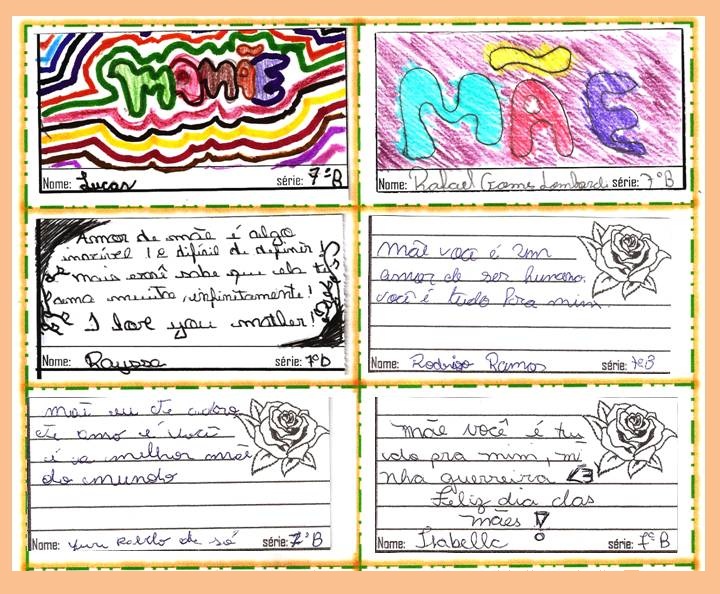 MAMÃE
Nome: Lucas série: 7ºB
MÃE
Nome: Rafael Gomes Lombardi série: 7ºB
Amor de mãe é algo
incrível! e difísil de definir!
Mais você sabe que ela te
ama muito, infinitamente!
I love you mother!
Nome: Rayssa série: 7ºB
Mãe você é um
amor de ser humano.
você é tudo Pra mim.
Nome: Rodrigo Ramos série: 7ºB
Mãe eu te adoro
te amo é você
é a melhor mãe
do mundo
Nome: Yuri de sá série: 7ºB
Mãe você é tu
do pra mim, mi
nha guerreira <3
Feliz dia das
mães!
Nome: Isabella série: 7ºB